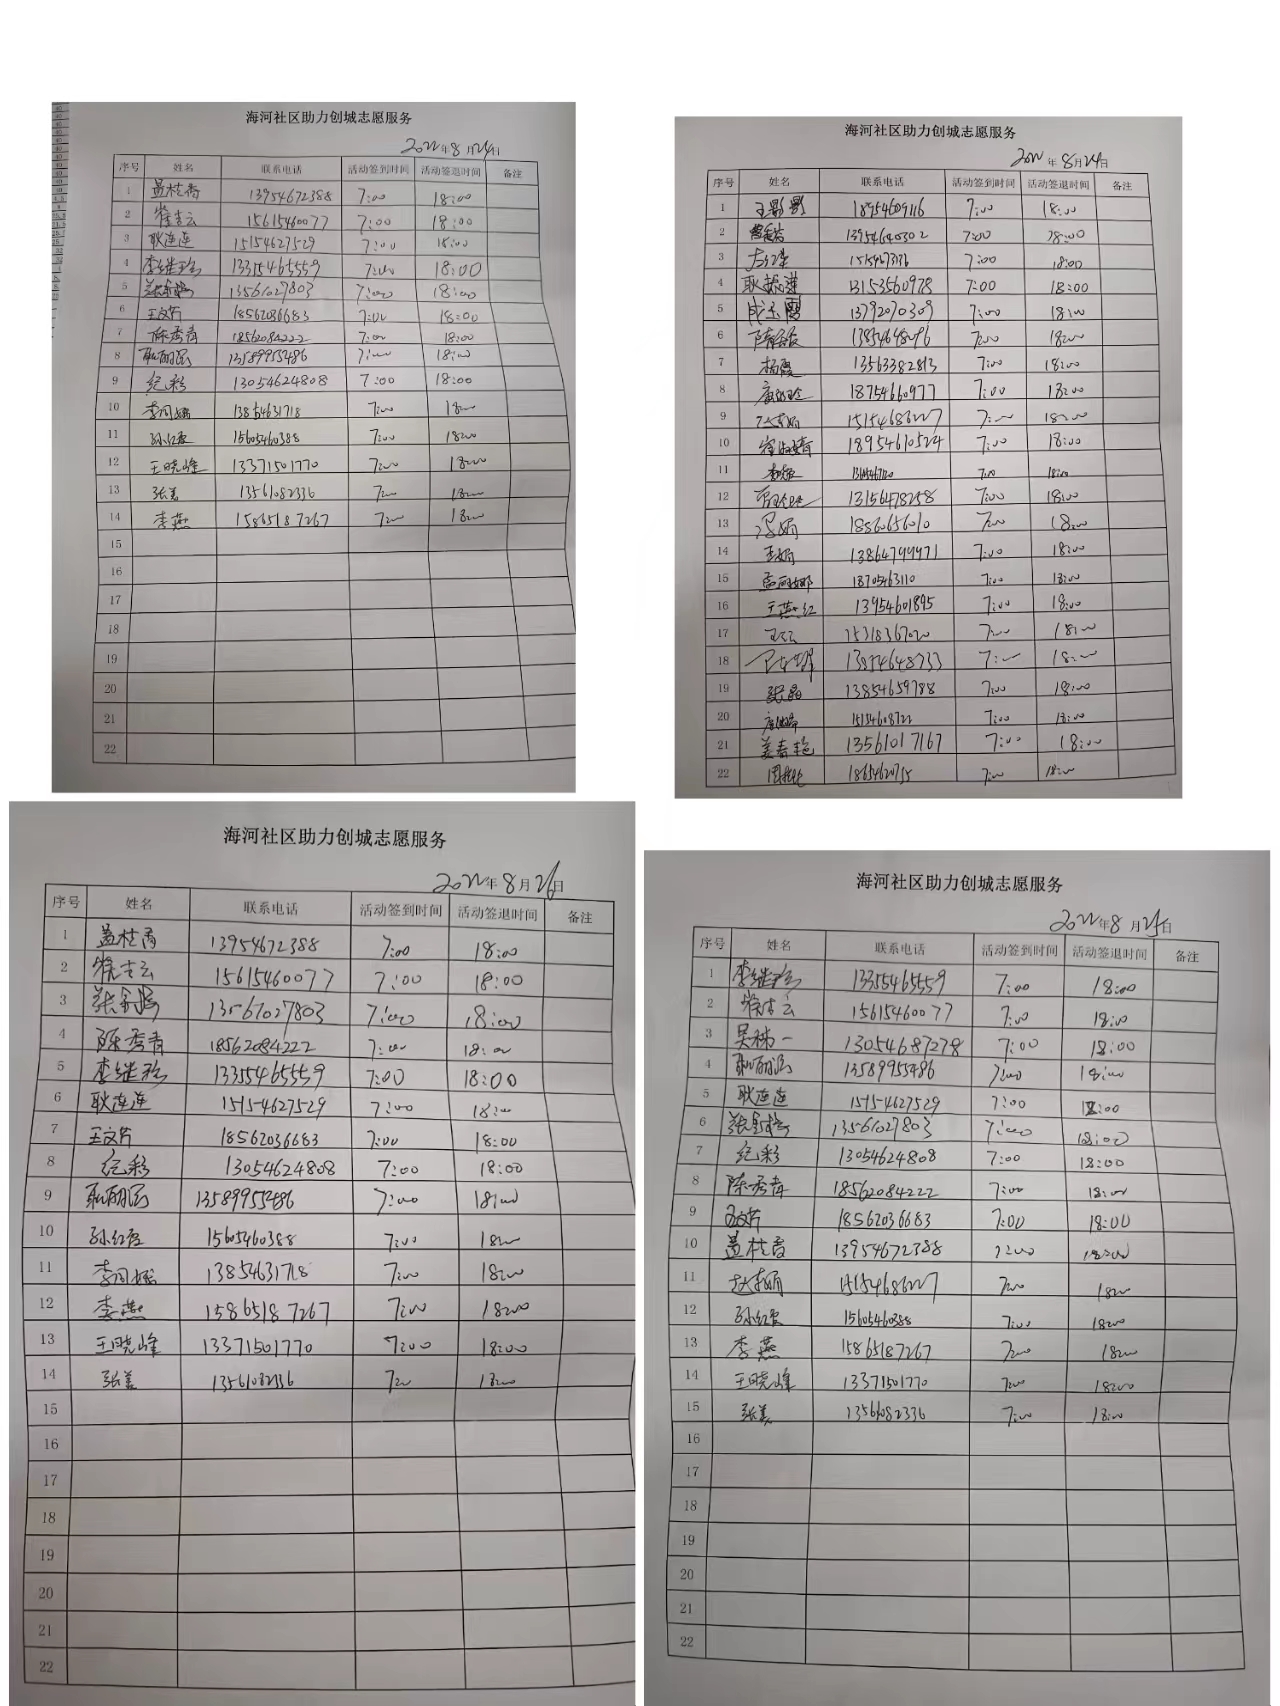 海河社区助力创城志愿服务
2022年8月24日
序号 姓名 联系电话 活动签到时间 活动签退时间 备注
1 盖桂香 13954672388 7:00 18:00
2 崔吉云 15615460077 7:00 18:00
3 耿连连 15154627529 7:00 18:00
4 李继珍 13355465559 7:00 18:00
5 13561027803 7:00 18:00
6 王文芹 18562036683 7:00 18:00
7 陈秀青 18562084222 7:00 18:00
8 耿丽民 13589955486 7:00 18:00
9 纪彩 13054624808 7:00 18:00
10 13854631718 7:00 18:00
11 孙红霞 15605460388 7:00 18:00
12 王晓峰 13371501770 7:00 18:00
13 张美 13561082336 7:00 18:00
14 李燕 15865187267 7:00 18:00
15
16
17
18
19
20
21
22
海河社区助力创城志愿服务
2022年8月24日
序号 姓名 联系电话 活动签到时间 活动签退时间 备注
1 王影影 18954609116 7:00 18:00
2 13954640302 7:00 18:00
3 7:00 18:00
4 13153560978 7:00 18:00
5 成玉霞 13792070309 7:00 18:00
6 13854648096 7:00 18:00
7 杨霞 13563382813 7:00 18:00
8 18754660977 7:00 18:00
9 15154686227 7:00 18:00
10 18954610524 7:00 18:00
11 7:00 18:00
12 13156478258 7:00 18:00
13 冯娟 18560656010 7:00 18:00
14 13864799971 7:00 18:00
15 18705463110 7:00 18:00
16 王燕红 13954601895 7:00 18:00
17 王云 7:00 18:00
18 13854648733 7:00 18:00
19 张晶 13854659788 7:00 18:00
20 15154608722 7:00 18:00
21 姜春艳 13561017167 7:00 18:00
22 7:00 18:00
海河社区助力创城志愿服务
2022年8月26日
序号 姓名 联系电话 活动签到时间 活动签退时间 备注
1 盖桂香 13954672388 7:00 18:00
2 崔吉云 15615460077 7:00 18:00
3 13561027803 7:00 18:00
4 陈秀青 18562084222 7:00 18:00
5 李继珍 13355465559 7:00 18:00
6 耿连连 15154627529 7:00 18:00
7 王文芹 18562036683 7:00 18:00
8 纪彩 13054624808 7:00 18:00
9 耿丽民 13589955486 7:00 18:00
10 孙红霞 15605460388 7:00 18:00
11 13854631718 7:00 18:00
12 李燕 15865187267 7:00 18:00
13 王晓峰 13371501770 7:00 18:00
14 张美 13561082336 7:00 18:00
15
16
17
18
19
20
21
22
海河社区助力创城志愿服务
2022年8月25日
序号 姓名 联系电话 活动签到时间 活动签退时间 备注
1 李继珍 13355465559 7:00 18:00
2 崔吉云 15615460077 7:00 18:00
3 吴秭一 13054687278 7:00 18:00
4 耿丽民 13589955486 7:00 18:00
5 耿连连 15154627529 7:00 18:00
6 13561027803 7:00 18:00
7 纪彩 13054624808 7:00 18:00
8 陈秀青 18562084222 7:00 18:00
9 王文芹 18562036683 7:00 18:00
10 盖桂香 13954672388 7:00 18:00
11 15154686227 7:00 18:00
12 孙红霞 15605460388 7:00 18:00
13 李燕 15865187267 7:00 18:00
14 王晓峰 13371501770 7:00 18:00
15 张美 13561082336 7:00 18:00
16
17
18
19
20
21
22